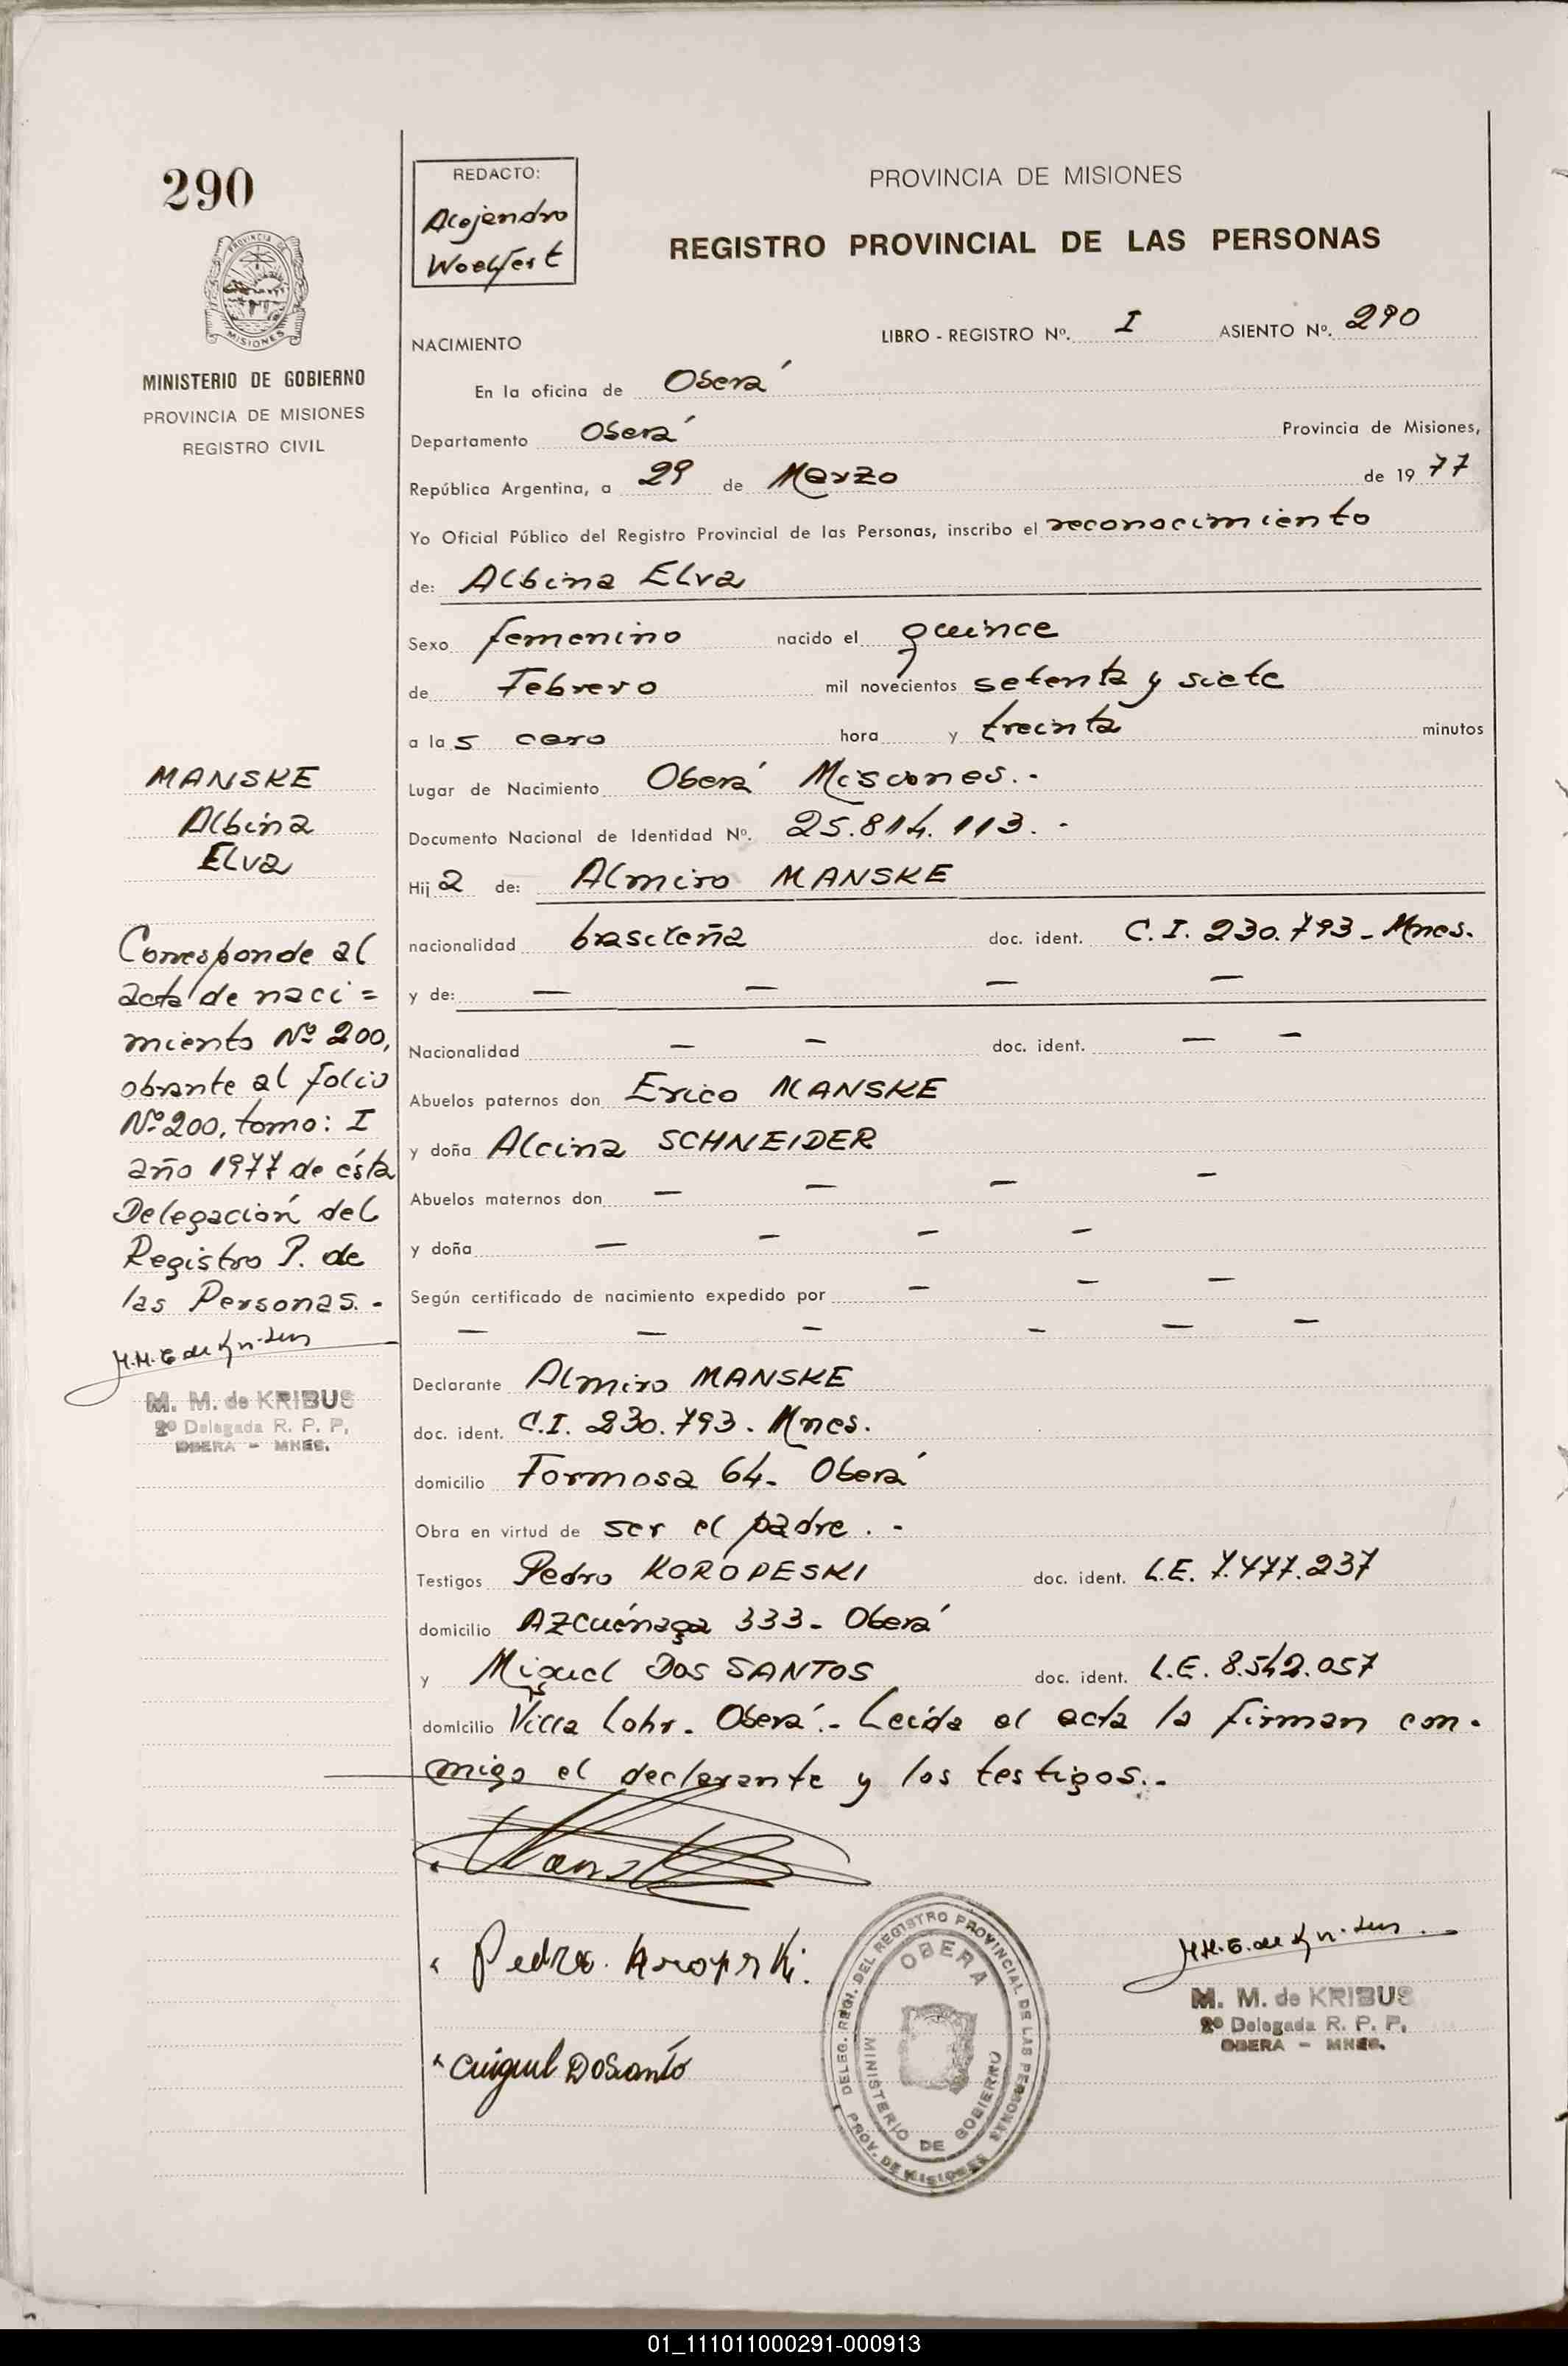 290
PROVINCIA DE
MISIONES
MINISTERIO DE GOBIERNO
PROVINCIA DE MISIONES
REGISTRO CIVIL
REDACTO:
Alejandro
Woelfert
PROVINCIA DE MISIONES
REGISTRO PROVINCIAL DE LAS PERSONAS
NACIMIENTO LIBRO - REGISTRO Nº. I ASIENTO Nº. 290
En la oficina de Oberá
Departamento Oberá Provincia de Misiones,
República Argentina, a 29 de Marzo de 1977
Yo Oficial Público del Registro Provincial de las Personas, inscribo el reconocimiento
de: Albina Elva
Sexo femenino nacido el quince
de Febrero mil novecientos setenta y siete
a las cero hora y treinta minutos
Lugar de Nacimiento Oberá Misiones.-
Documento Nacional de Identidad Nº. 25.814.113.-
Hija de: Almiro MANSKE
nacionalidad brasileña doc. ident. C.I. 230.793-Mnes.
y de: — — — —
Nacionalidad — — doc. ident. — —
Abuelos paternos don Erico MANSKE
y doña Alcina SCHNEIDER
Abuelos maternos don — — — —
y doña — — — —
Según certificado de nacimiento expedido por — — —
— — — — — —
Declarante Almiro MANSKE
doc. ident. C.I. 230.793. Mnes.
domicilio Formosa 64- Oberá
Obra en virtud de ser el padre.-
Testigos Pedro KOROPESKI doc. ident. L.E. 7.477.237
domicilio Azcuénaga 333- Oberá
y Miguel DOS SANTOS doc. ident. L.E. 8.542.057
domicilio Villa Lohr- Oberá.- Leída el acta la firman con-
migo el declarante y los testigos.-
MANSKE
Albina
Elva
Corresponde al
acta de naci=
miento Nº 200,
obrante al folio
Nº 200, tomo: I
año 1977 de ésta
Delegación del
Registro P. de
las Personas.-
M. M. de KRIBUS
2º Delegada R. P. P.
OBERA - MNES.
Manske
Pedro
DELEG. REGI. DEL REGISTRO PROVINCIAL DE LAS PERSONAS
PROV. DE MISIONES
OBERA
MINISTERIO DE GOBIERNO
M. M. de KRIBUS
2º Delegada R. P. P.
OBERA - MNES.
01_111011000291-000913